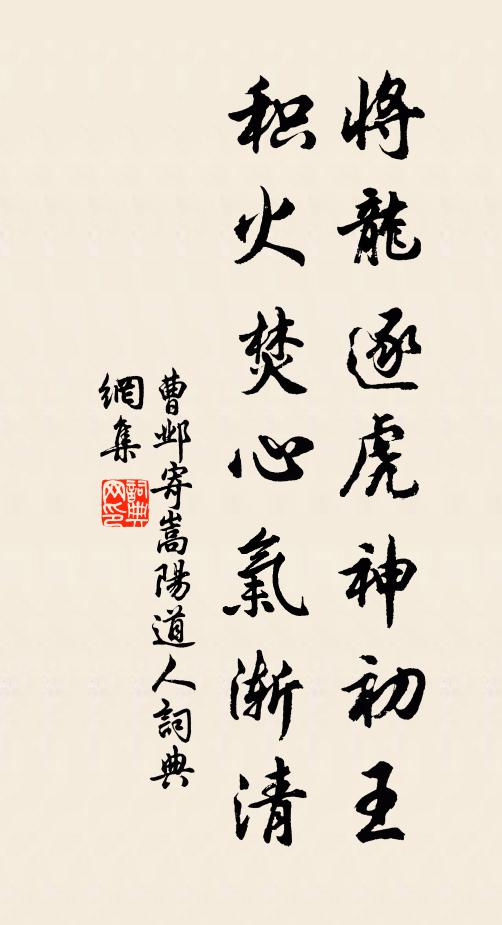 将龍逐虎神初王
积火焚心氣渐清
曹邺寄嵩陽道人詞典
網集
詞典
网印